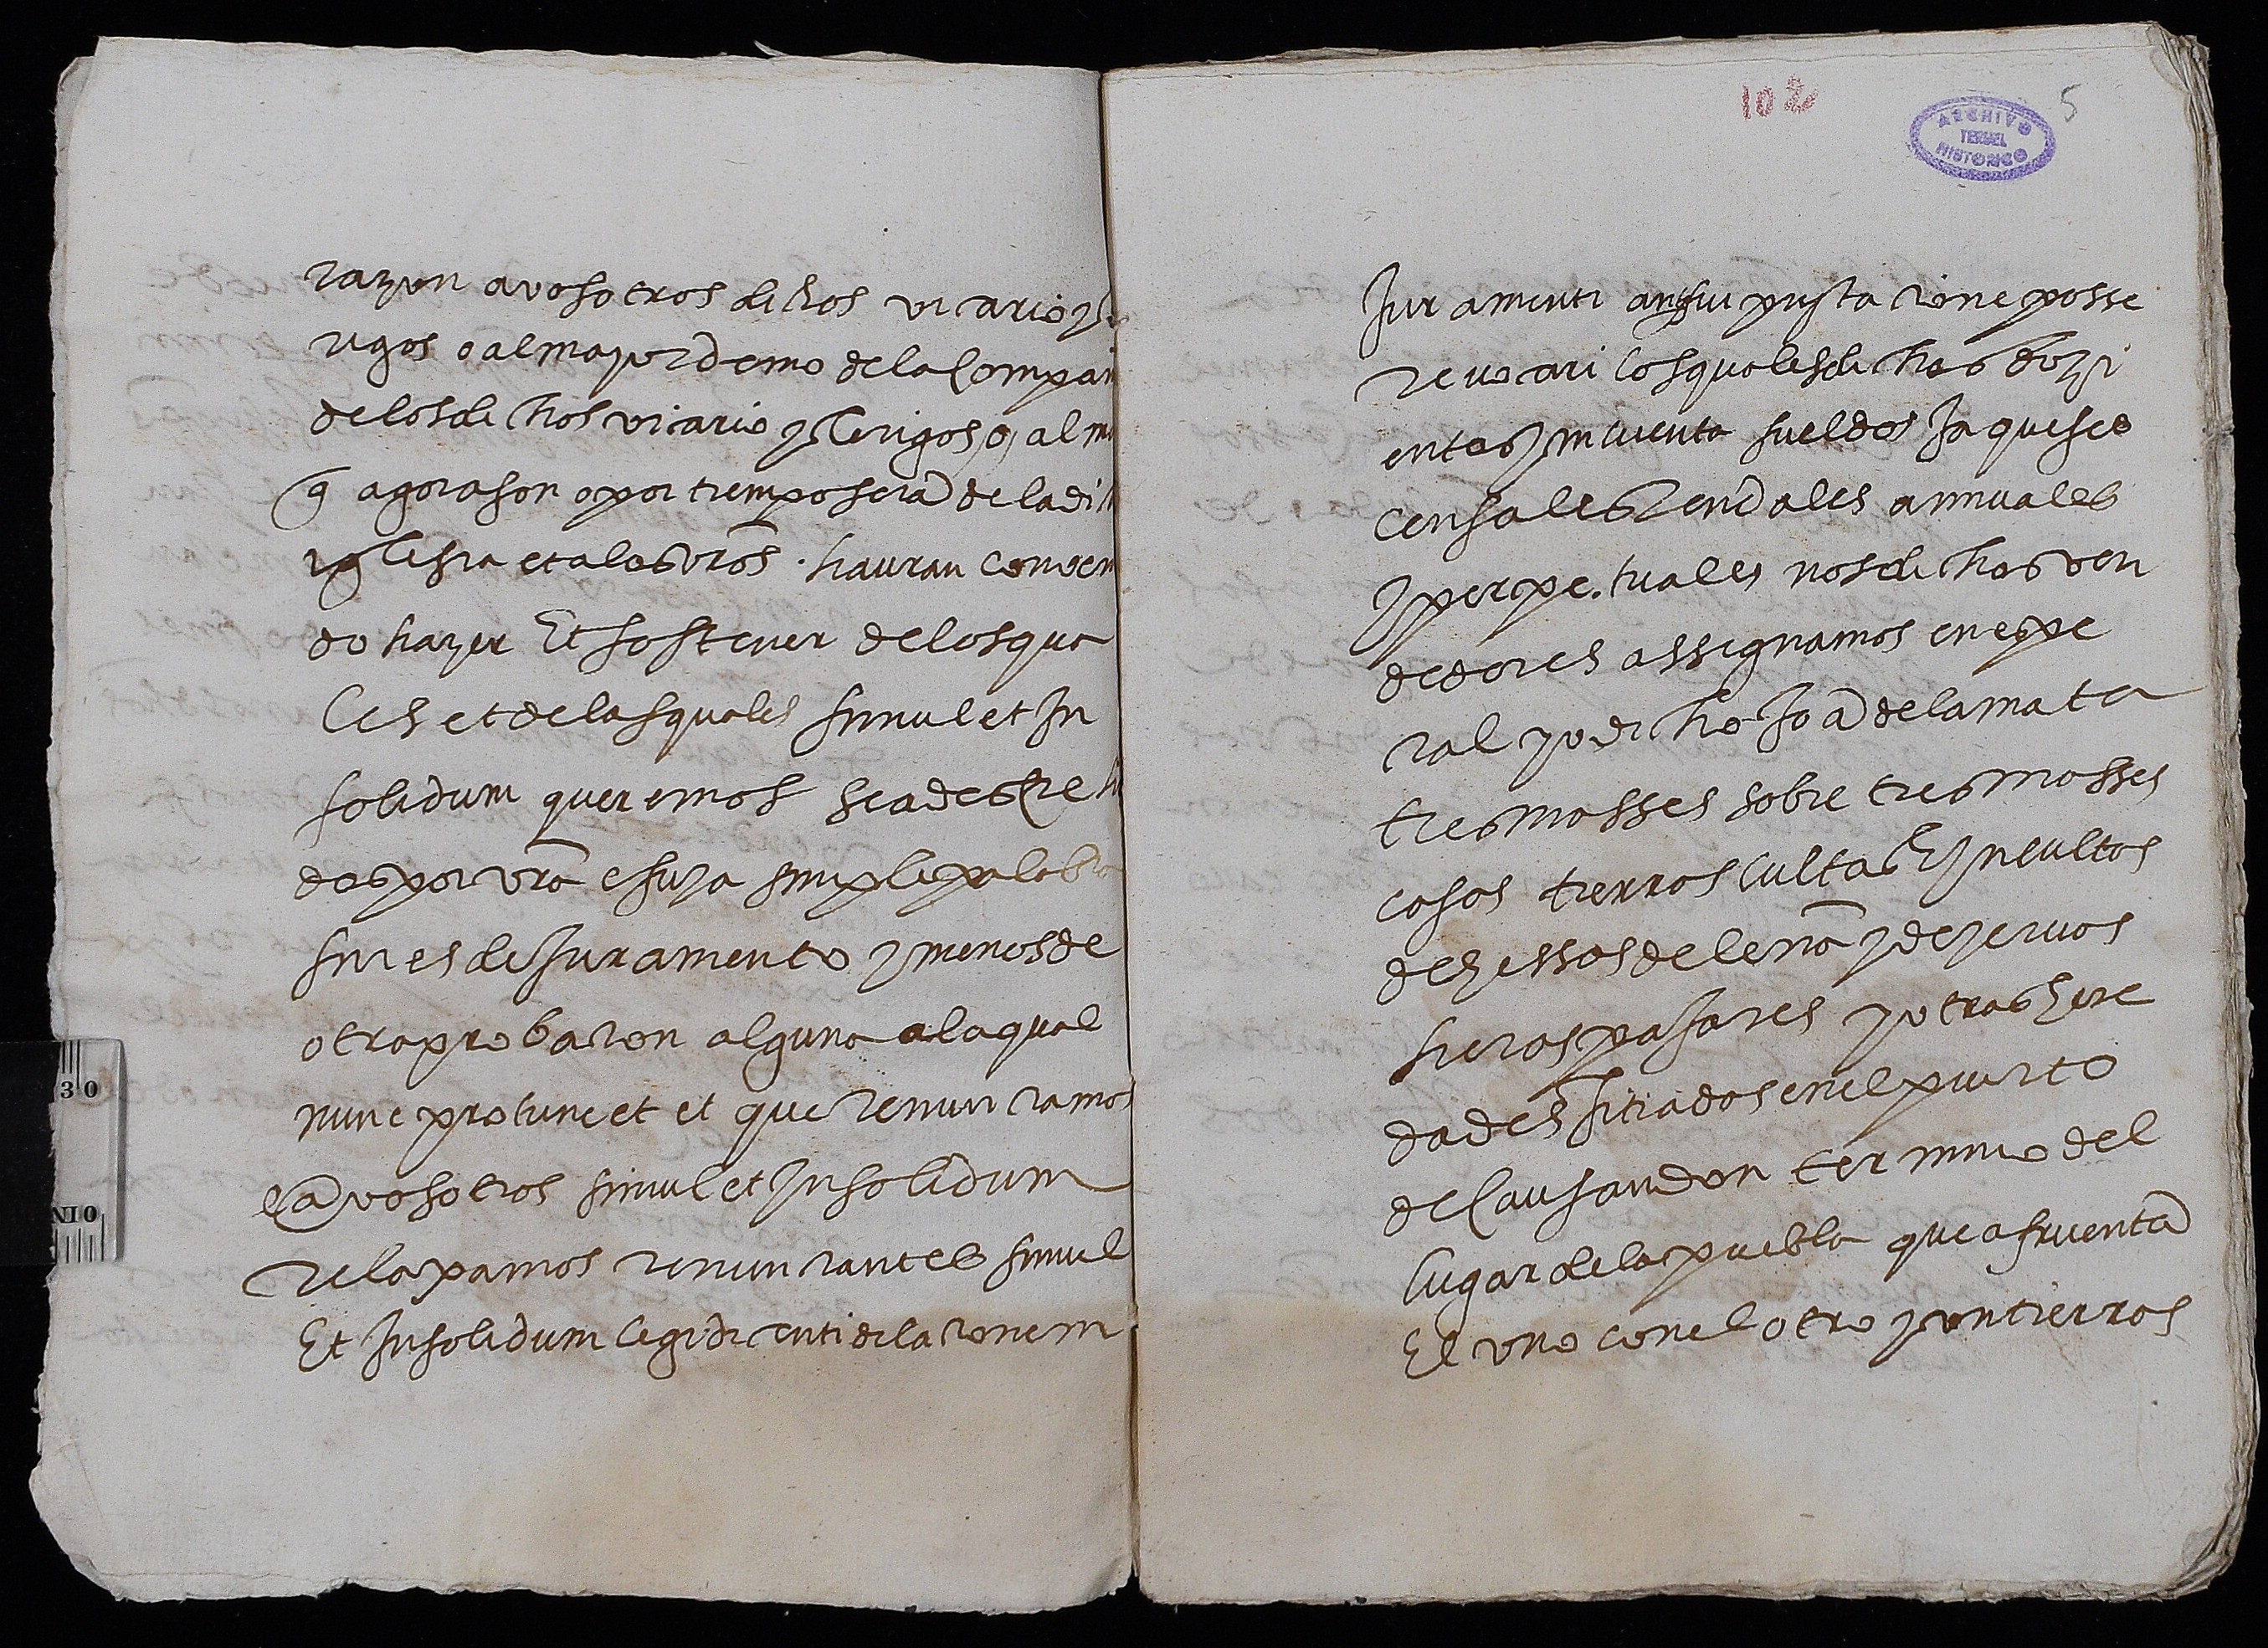 razon a vosotros dichos vicario y
rigos o al mayordomo de la Compan
de los dichos vicario y clerigos, o, al m
q̃ agora son o por tiempo seran de la dich
yglesia et a los vr̃os. hauran conuen
do hazer Et sostener de los qua
les et de las quales simul et In
solidum queremos seades crehi
dos por vr̃a e suya simple palabra
sines de Juramento y menos de
otra probacion alguna a la qual
nunc pro tunc et et que renunciamos
e a vosotros simul et Insolidum
relaxamos renunciantes simul
Et Insolidum legi dicenti delacionem
102
5
ARCHIVO
TERUEL
HISTORICO
Juramenti prestacione posse
reuocari los quales dichos dozi
entos y cincuenta sueldos Jaqueses
censales rendales annuales
y perpetuales nos dichos ven
dedores assignamos en espe
cial yo dicho Joã de la mata
tres masses sobre tres masses
casas tierras cultas E Incultas
dehessas de leña y de yeruas
heras pajares y otras here
dades sitiados en el puerto
de Causandon termino del
lugar de la puebla que afruentã
El vno con el otro y con tierras